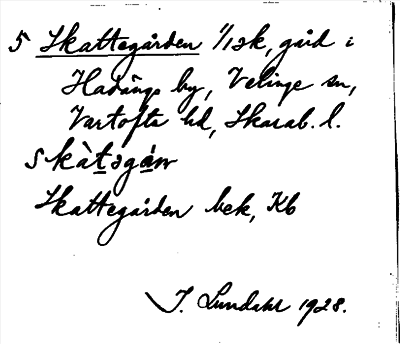 5 Skattegården 1/1 sk, gård i
Hadängs by, Velinge sn,
Vartofta hd, Skarab. l.
skàt̠əgáɳ
Skattegården bek, Kb
I. Lundahl 1928.